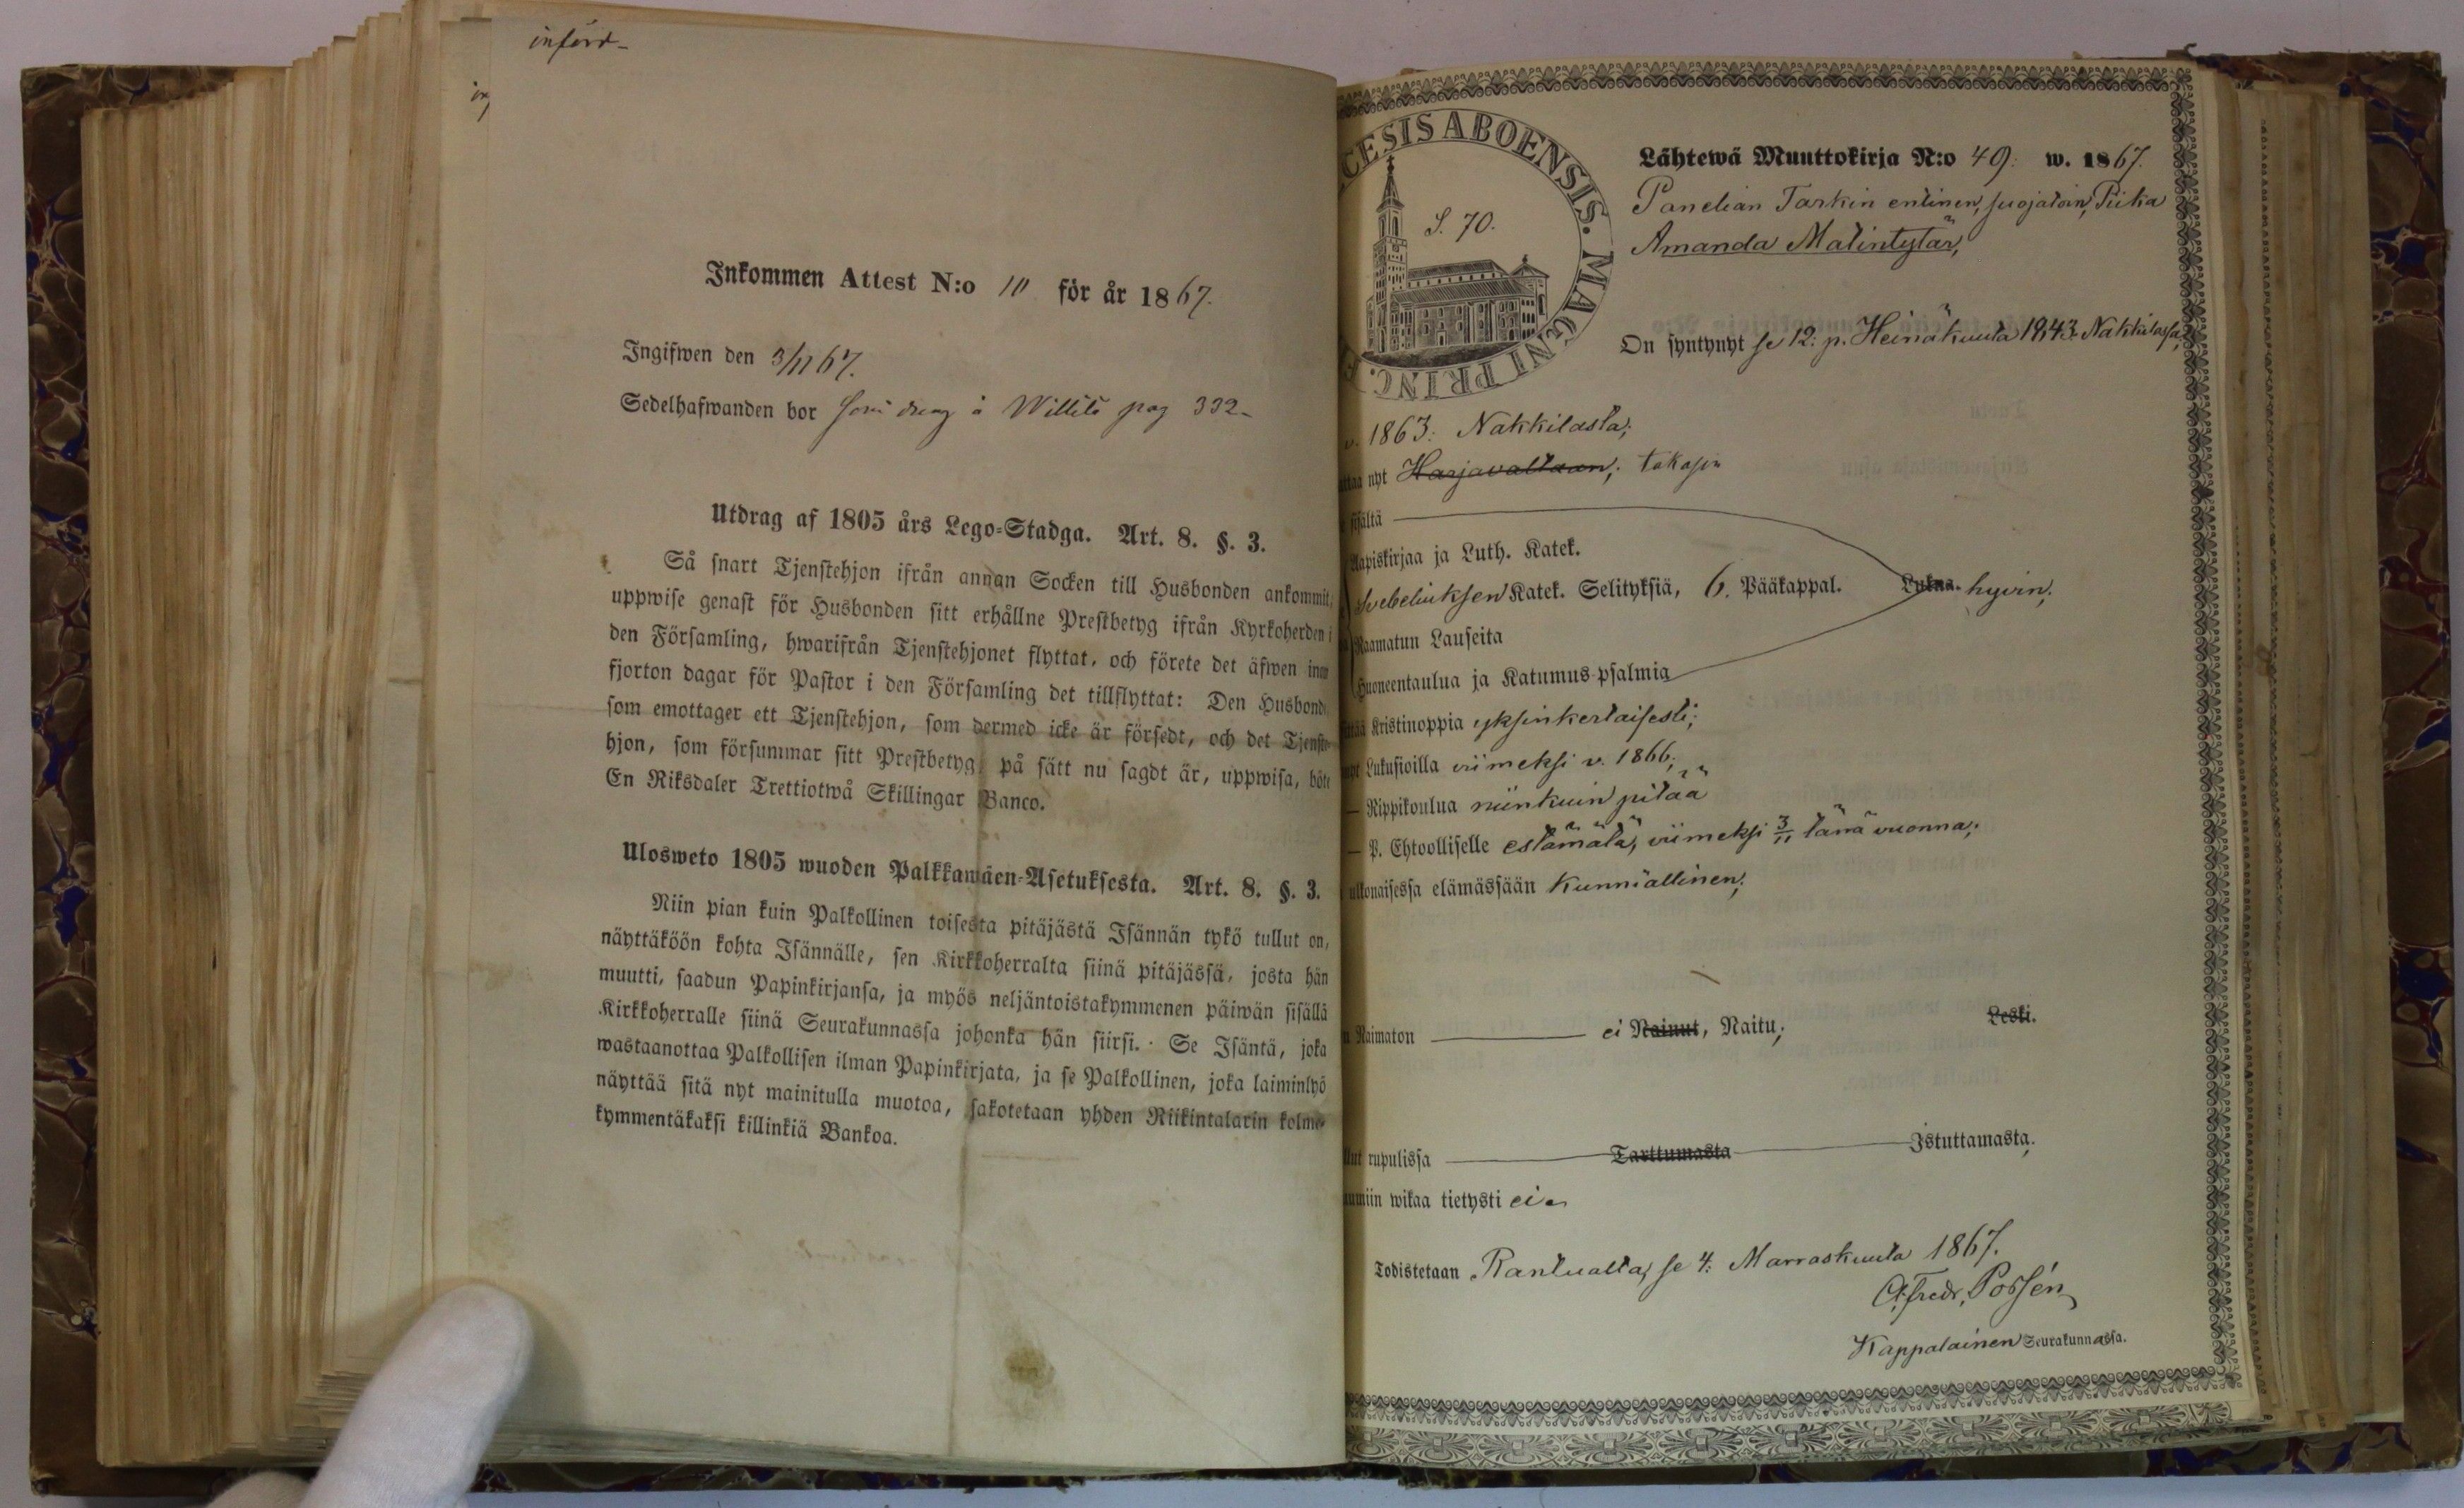 införd-
Inkommen Attest N:o 10 för år 1867.
Ingifwen den 3/11 67.
Sedelhafwanden bor som dreng å Willilä pag 332-
Utdrag af 1805 års Lego-Stadga. Art. 8. §. 3.
Så snart Tjenstehjon ifrån annan Socken till Husbonden ankommit,
uppwise genast för Husbonden sitt erhållne Prestbetyg ifrån Kyrkoherden i
den Församling, hwarifrån Tjenstehjonet flyttat, och förete det äfwen inom
fjorton dagar för Pastor i den Församling det tillflyttat: Den Husbonde
som emottager ett Tjenstehjon, som dermed icke är försedt, och det Tjenste-
hjon, som försummar sitt Prestbetyg, på sätt nu sagdt är, uppwisa, böte
En Riksdaler Trettiotwå Skillingar Banco.
Ulosweto 1805 wuoden Palkkawäen-Asetuksesta. Art. 8. §. 3.
Niin pian kuin Palkollinen toisesta pitäjästä Isännän tykö tullut on,
näyttäköön kohta Isännälle, sen Kirkkoherralta siinä pitäjässä, josta hän
muutti, saadun Papinkirjansa, ja myös neljäntoistakymmenen päiwän sisällä
Kirkkoherralle siinä Seurakunnassa johonka hän siirsi. Se Isäntä, joka
wastaanottaa Palkollisen ilman Papinkirjata, ja se Palkollinen, joka laiminlyö
näyttää sitä nyt mainitulla muotoa, sakotetaan yhden Riikintalarin kolme-
kymmentäkaksi killinkiä Bankoa.
CESIS ABOENSIS. MAGNI PRINC.
S. 70.
Lähtewä Muuttokirja N:o 49. w. 1867.
Panelian Tarkin entinen, suojatoin, Piika
Amanda Matintytär,
On syntynyt se 12: p. Heinäkuuta 1843 Nakkilassa,
v. 1863: Nakkilasta;
nyt Harjavaltaan; takasin
sisältä
Aapiskirjaa ja Luth. Katek.
Svebeliuksen Katek. Selityksiä, 6. Pääkappal. Lukua. hyvin;
Raamatun Lauseita
Huoneentaulua ja Katumus-psalmia
Kristinoppia yksinkertaisesti;
Lukusioilla viimeksi v. 1866;
— Rippikoulua niinkuin pitää
— P. Ehtoolliselle estämätä, viimeksi 3/11 tänä vuonna;
ullonaisessa elämässään Kunniallinen;
Naimaton ei Nainut, Naitu; Leski.
rupulissa Tarttumasta Istuttamasta.
wikaa tietysti ei.
Todistetaan Kantualta, se 4: Marraskuuta 1867.
Alfredr. Porsén
Kappalainen Seurakunnassa.